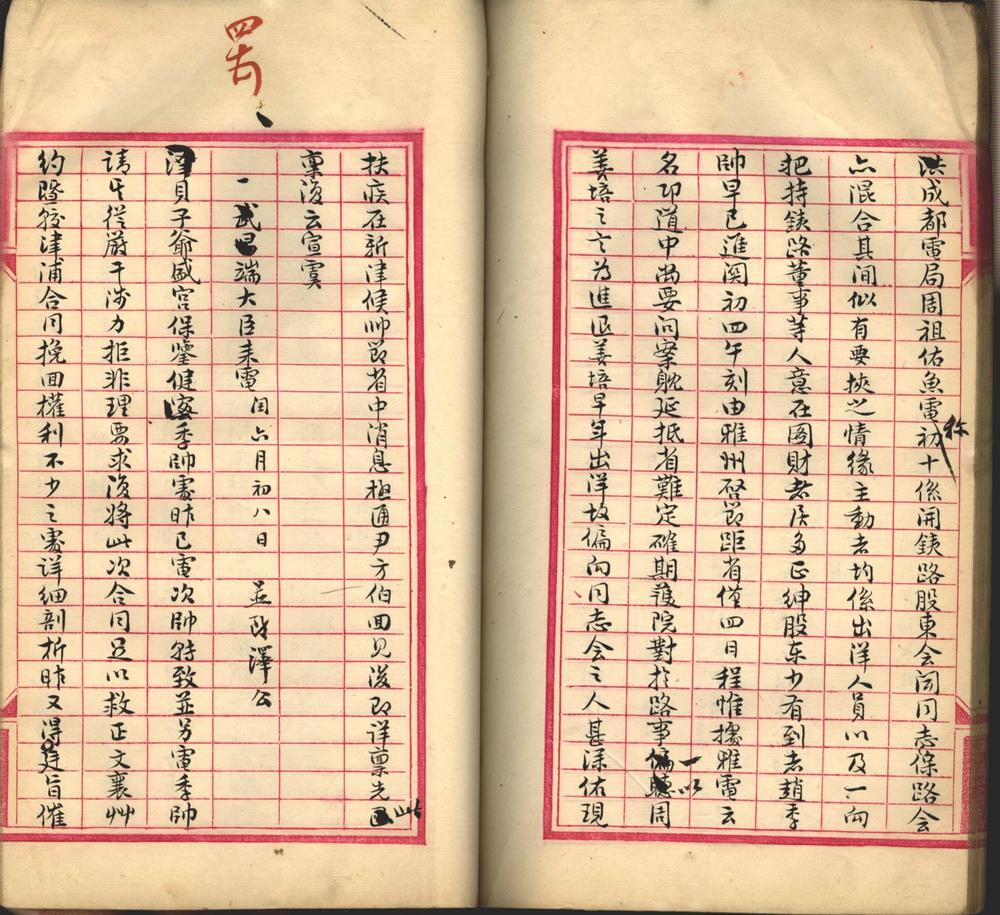 成都電局周祖佑魚電称初十係開鉄路股東会闻同志保路会
亦混合其间似有要挾之情緣主動者均係出洋人員以及一向
把持鉄路董事等人意在圖財者居多正绅股东少有到者趙季
帥早已進関初四午刻由雅州啓節距省僅四日程惟據雅電云
名邛道中尚要问案耽延抵省難定確期護院對於路事一以周
善培之言为進退善培早年出洋故偏向同志会之人甚深佑現
扶疾在新津候帅節省中消息極通尹方伯回見後即详禀先此
禀復云宣虞
一武昌端大臣来電 闰六月初八日 並致澤公
澤貝子爺盛宫保鑒健密季帥電昨已電次帥转致並另電季帥
請其從嚴干涉力拒非理要求後将此次合同足以救正文襄艸
约暨較津浦合同挽回權利不少之處详细剖析昨又得廷旨催
四十